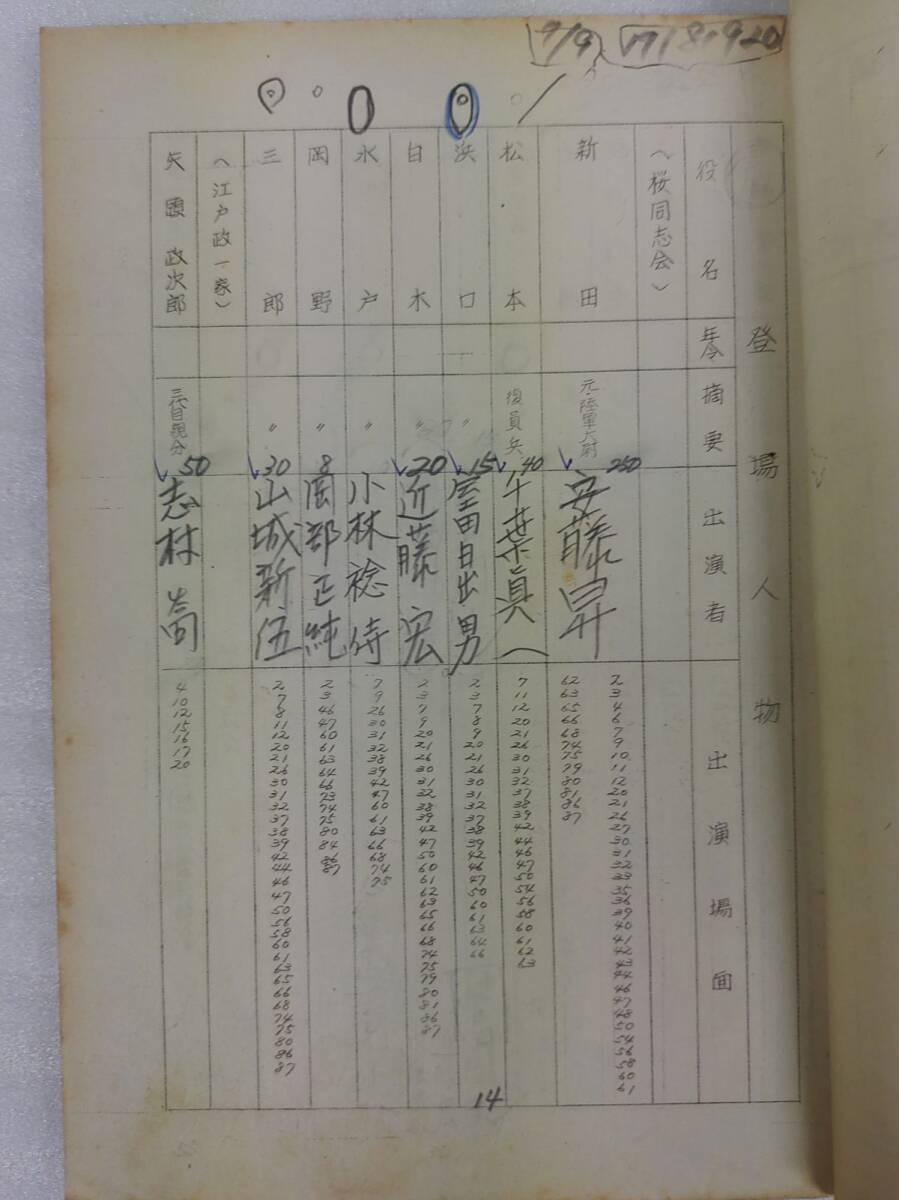 7/9、17 18 19 20
登場人物
役名
年令
摘要
出演者
出演場面
〈桜同志会〉
新田
元・陸軍大尉
250
安藤昇
2 3 4 6 7 9 10 11 12 20 21 26 27 30 31 32 33 35 36 39 40 41 42 43 44 46 47 48 50 54 56 58 60 61
62 63 65 66 68 74 75 79 80 81 86 87
松本
復員兵
40
千葉真一
7 11 12 20 21 26 30 31 32 37 38 39 42 44 46 47 50 54 56 58 60 61 62 63
浜口
〃
15
室田日出男
2 3 7 8 9 20 21 26 30 31 32 37 38 39 42 46 47 50 60 61 63 64 66
白木
〃
20
近藤宏
2 3 7 9 20 21 26 30 31 32 38 39 42 47 50 60 61 62 63 65 66 68 74 75 79 80 81 86 87
水戸
〃
小林稔侍
7 9 26 30 31 32 38 39 42 47 60 61 63 66 68 74 75
岡野
〃
8
岡部正純
2 3 46 47 60 61 63 64 66 73 74 75 80 84 86 87
三郎
〃
30
山城新伍
2 7 8 11 12 20 21 26 30 31 32 37 38 39 42 44 46 47 50 56 58 60 61 63 65 66 68 74 75 80 86 87
〈江戸政一家〉
矢頭政次郎
三代目親分
50
志村喬
4 10 12 15 16 17 20
14